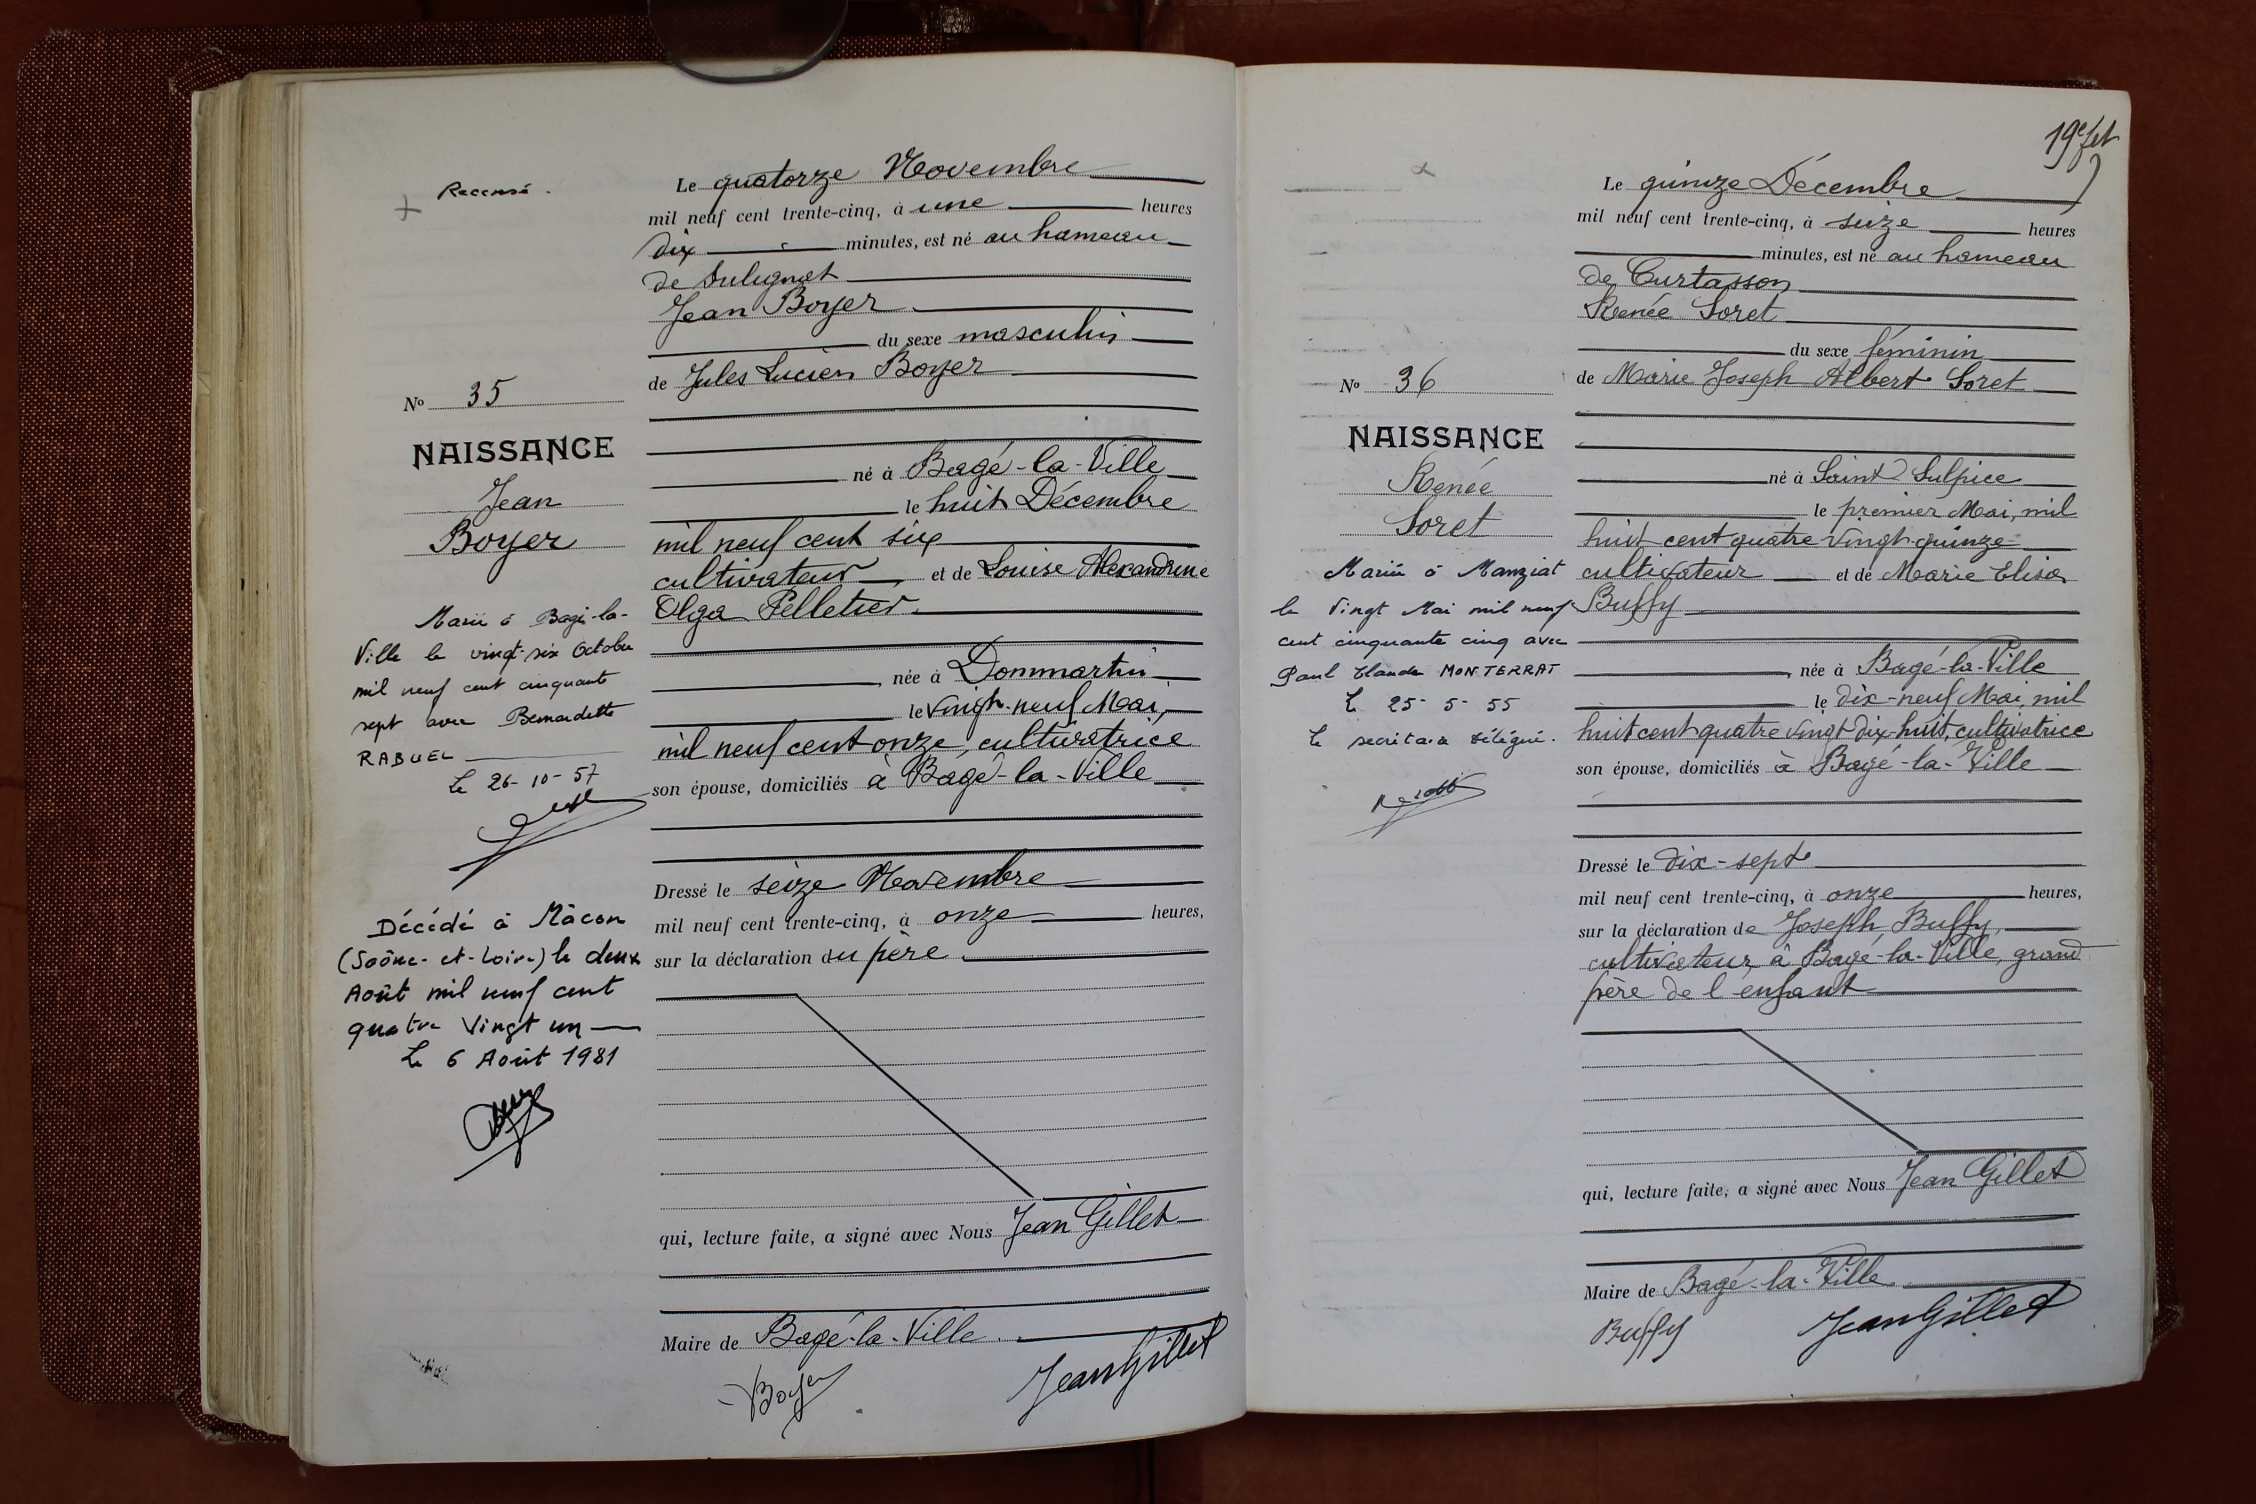 Recensé.
Le quatorze Novembre
mil neuf cent trente-cinq, à une heures
dix minutes, est né au hameau
de Sulignat
Jean Boyer
du sexe masculin
de Jules Lucien Boyer
N° 35
NAISSANCE
Jean
Boyer
né à Bagé-la-Ville
le huit Décembre
mil neuf cent six
cultivateur et de Louise Alexandrine
Olga Pelletier
née à Dommartin
le vingt-neuf Mai,
mil neuf cent onze, cultivatrice
son épouse, domiciliés à Bagé-la-Ville
Marié à Bagé-la-
Ville le vingt-six Octobre
mil neuf cent cinquante
sept avec Bernadette
RABUEL
Le 26-10-57
Dressé le seize Novembre
mil neuf cent trente-cinq, à onze heures,
sur la déclaration du père
Décédé à Mâcon
(Saône-et-Loire) le deux
Août mil neuf cent
quatre vingt un
Le 6 Août 1981
qui, lecture faite, a signé avec Nous Jean Gillet
Maire de Bagé-la-Ville
Boyer JeanGillet
19e fet
Le quinze Décembre
mil neuf cent trente-cinq, à seize heures
minutes, est né au hameau
de Curtasson
Renée Soret
du sexe féminin
de Marie Joseph Albert Soret
N° 36
NAISSANCE
Renée
Soret
né à Saint Sulpice
le premier Mai, mil
huit cent quatre vingt quinze
cultivateur et de Marie Elisa
Buffy
née à Bagé-la-Ville
le dix-neuf Mai, mil
huit cent quatre vingt dix-huit, cultivatrice
son épouse, domiciliés à Bagé-la-Ville
Mariée à Manziat
le vingt Mai mil neuf
cent cinquante cinq avec
Paul Claude MONTERRAT
Le 25-5-55
Le secrétaire délégué.
Dressé le dix-sept
mil neuf cent trente-cinq, à onze heures,
sur la déclaration de Joseph Buffy,
cultivateur à Bagé-la-Ville, grand
père de l'enfant
qui, lecture faite, a signé avec Nous Jean Gillet
Maire de Bagé-la-Ville
Buffy JeanGillet